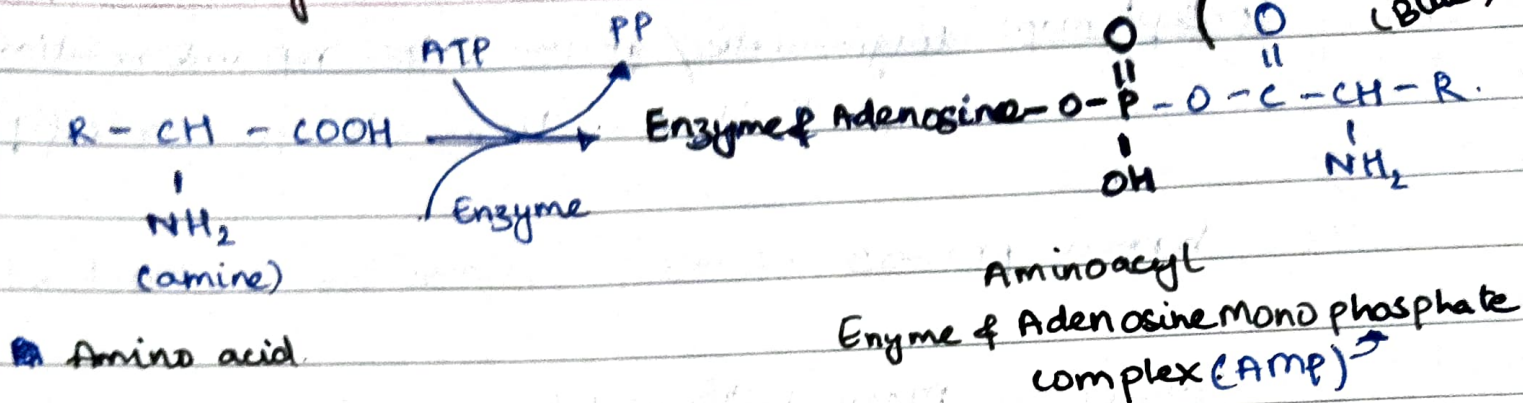 ATP PP O O
|| ||
R - CH - COOH Enzyme & Adenosine-O-P-O-C-CH-R.
NH2 Enzyme OH NH2
(amine)
Aminoacyl
Enyme & Adenosine mono phosphate
Amino acid. complex (AMP)